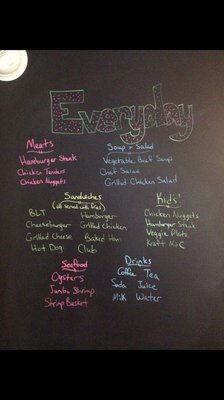 Everyday
Meats
Hamburger Steak
Chicken Tenders
Chicken Nuggets
Soup & Salad
Vegetable Beef Soup
Chef Salad
Grilled Chicken Salad
Sandwiches
(all served with fries)
BLT
Cheeseburger
Grilled Cheese
Hot Dog
Hamburger
Grilled Chicken
Baked Ham
Club
Kids!
Chicken Nuggets
Hamburger Steak
Veggie Plate
Kraft M&C
Seafood
Oysters
Jumbo Shrimp
Shrimp Basket
Drinks
Coffee Tea
Soda Juice
Milk Water